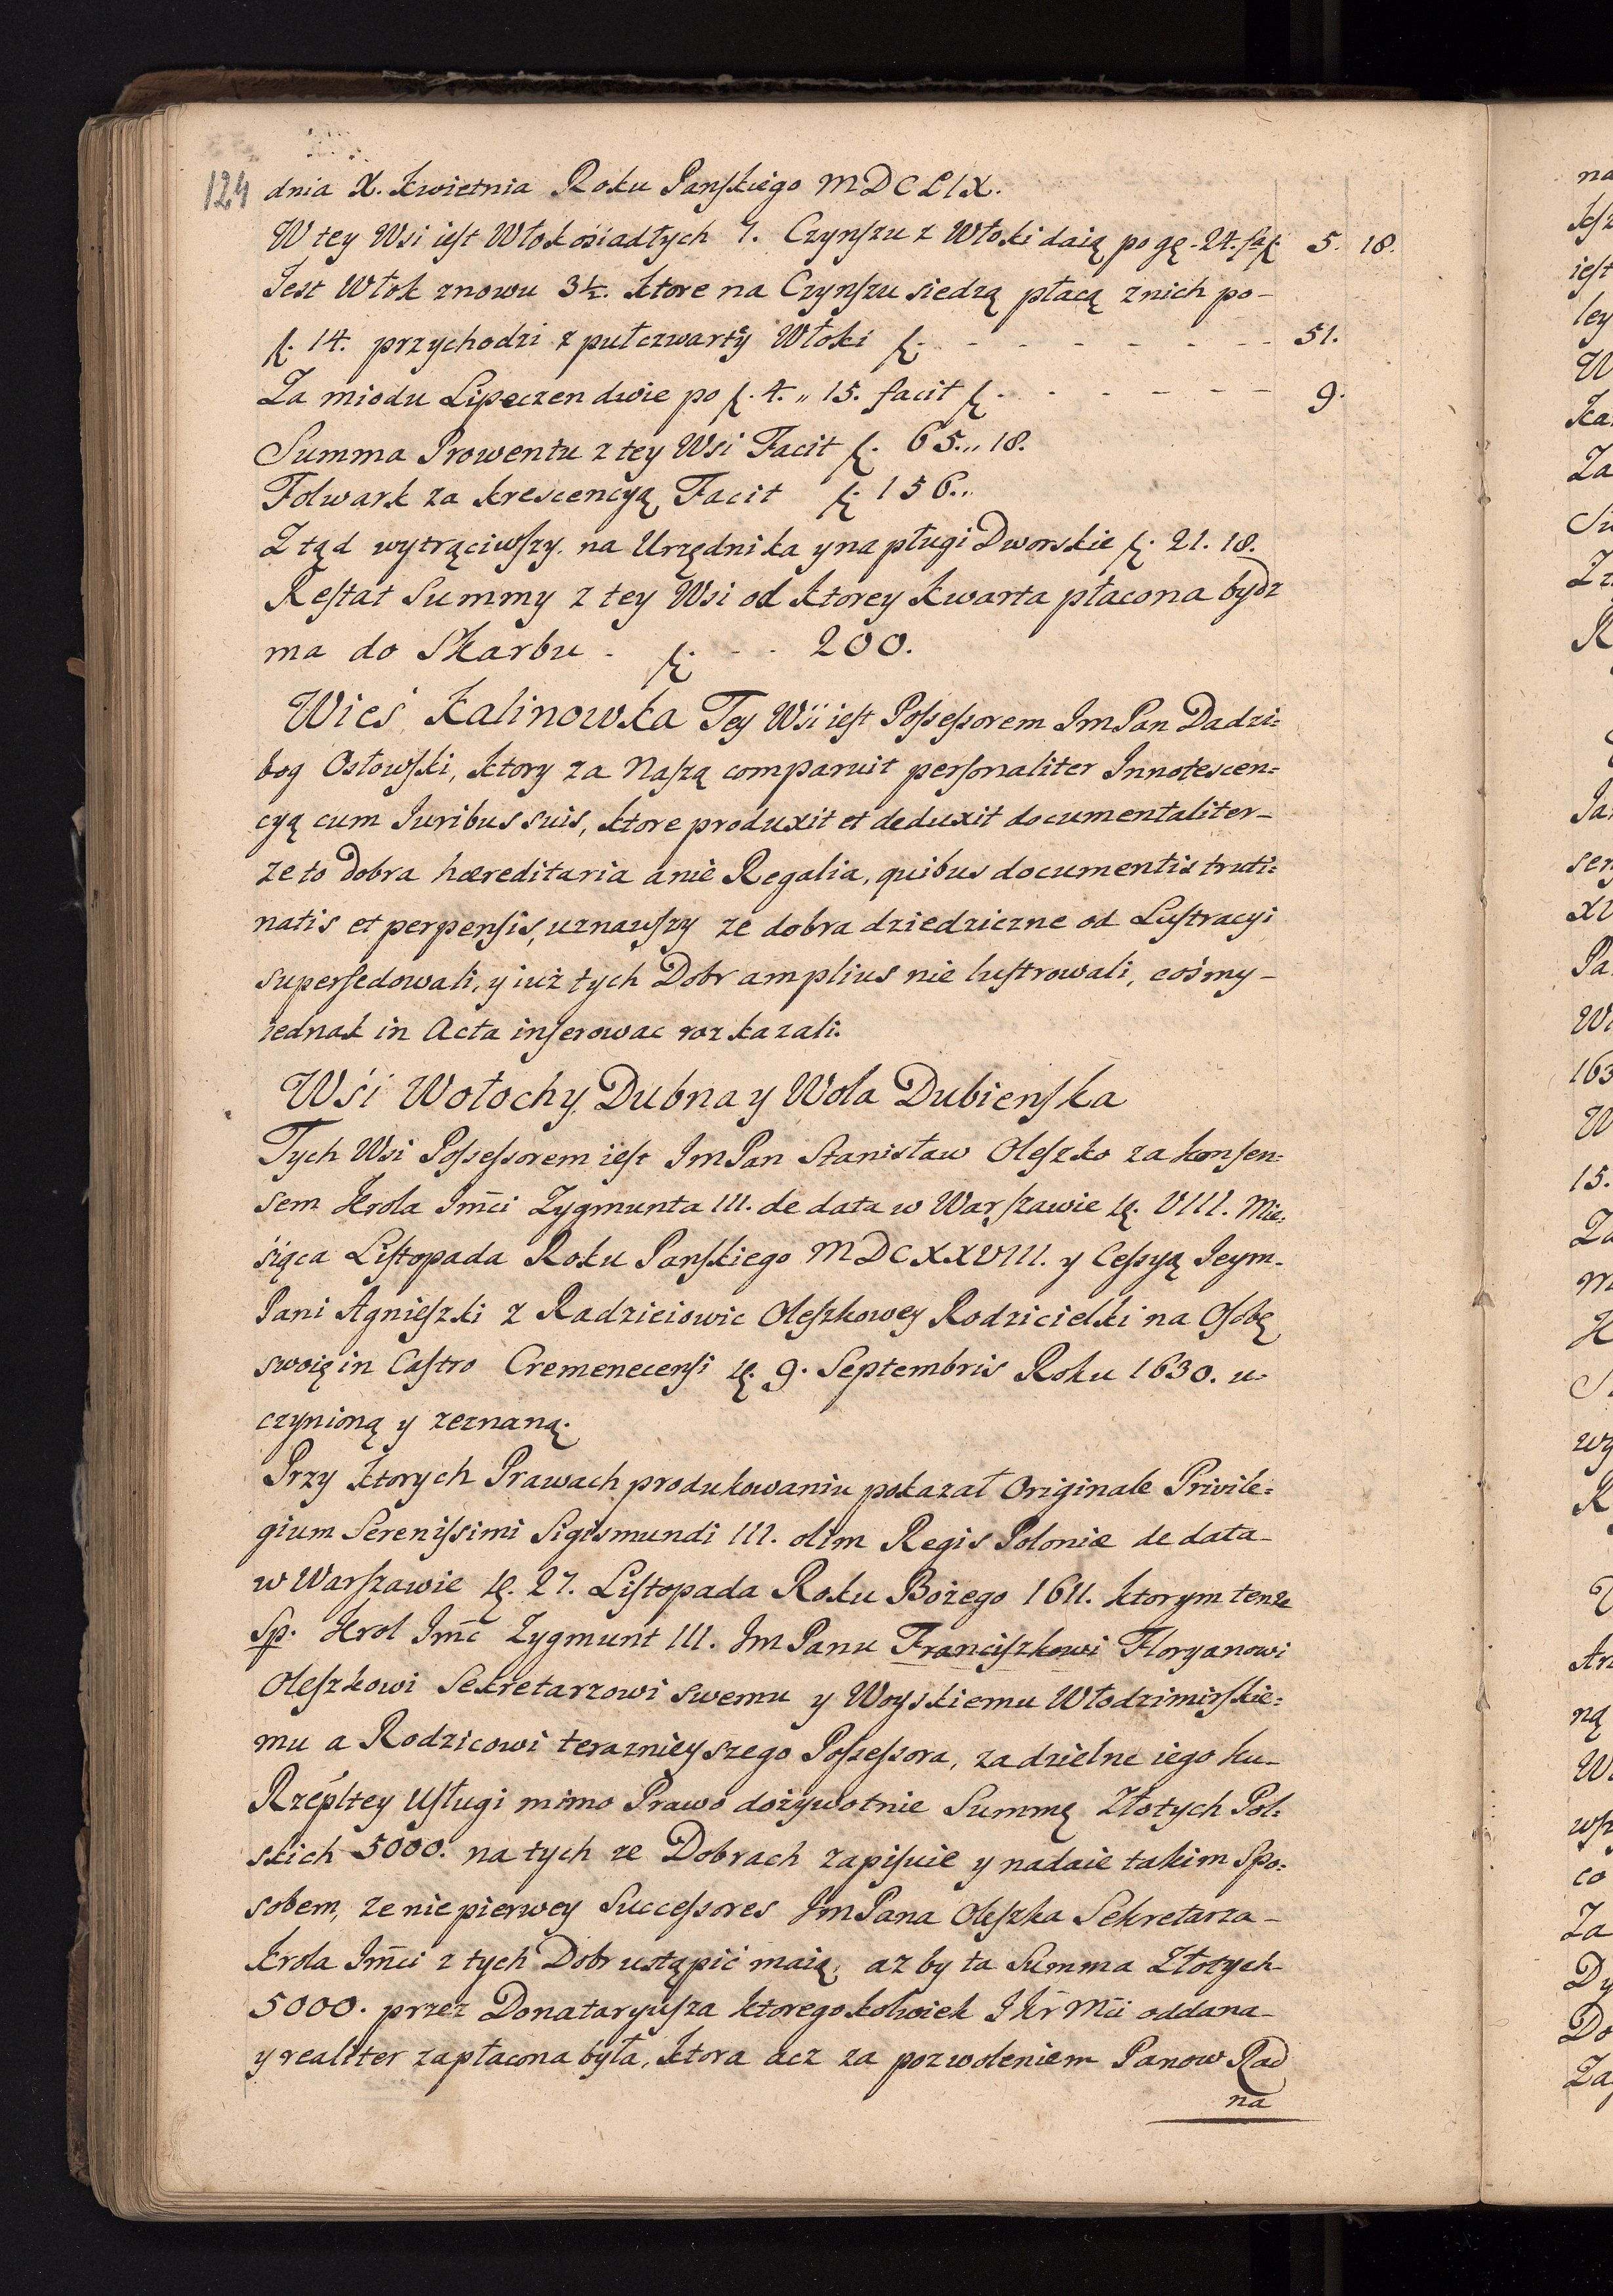 124
dnia X. Kwietnia Roku Panskiego MDCLIX.
W tey Wsi iest Włok osiadłych 7. Czynszu z Włoki daią po gę. 24. fac f. 5. 18.
Iest Włok znowu 3½. Ktore na Czynszu siedzą płacą z nich po-
f. 14. przychodzi z pułczwarty Włoki f. - - - - - - - 51.
Za miodu Lipeczen dwie po f. 4. „ 15. facit f. - - - - - - 9.
Summa Prowentu z tey Wsi Facit f. 65.„ 18.
Folwark za krescencyą Facit f. 156.„
Z tąd wytrąciwszy na Urzędnika y na pługi Dworskie f. 21. 18.
Restat Summy z tey Wsi od Ktorey Kwarta płacona bydz
ma do Skarbu - f. - - 200.
Wieś Kalinowka Tey Wsi iest Possessorem Im Pan Dadzi=
bog Osłowski, Ktory za Naszą comparuit personaliter Innotescen=
cyą cum Iuribus suis, Ktore produxit et deduxit documentaliter-
ze to Dobra hæreditaria a nie Regalia, quibus documentis truti=
natis et perpensis, uznawszy ze dobra dziedziczne od Lustracyi
supersedowali, y iuż tych Dobr amplius nie lustrowali, cośmy-
iednak in Acta inserowac rozkazali.
Wśi Wołochy Dubna y Wola Dubienska
Tych Wsi Possessorem iest Im Pan Stanisław Oleszko za konsen=
sem Krola Imci Zygmunta III. de data w Warszawie d. VIII. Mie=
siąca Listopada Roku Panskiego MDCXXVIII. y Cessyą Ieym-
Pani Agnieszki z Radzieiowic Oleszkowey Rodzicielki na Osobę
swoię in Castro Cremenecensi d. 9. Septembris Roku 1630. u-
czynioną y zeznaną.
Przy Ktorych Prawach produkowaniu pokazał Originale Privile=
gium Serenissimi Sigismundi III. olim Regis Poloniæ de data-
w Warszawie d. 27. Listopada Roku Bożego 1611. Ktorym tenże
Sp. Krol Imc Zygmunt III. Im Panu Franciszkowi Floryanowi
Oleszkowi Sekretarzowi swemu y Woyskiemu Włodzimirskie=
mu a Rodzicowi teraznieyszego Possessora, za dzielne iego ku-
Rzépltey Usługi mimo Prawo dożywotnie Summę Złotych Pol=
skich 5000. na tych ze Dobrach zapisuie y nadaie takim spo=
sobem, ze nie pierwey Successores Im Pana Oleszka Sekretarza-
Krola Imci z tych Dobr ustąpić maią, az by ta Summa Złotych-
5000. przez Donataryusza Ktoregokolwiek I Kr Mci oddana-
y realiter zapłacona była, Ktora acz za pozwoleniem Panow Rad
na